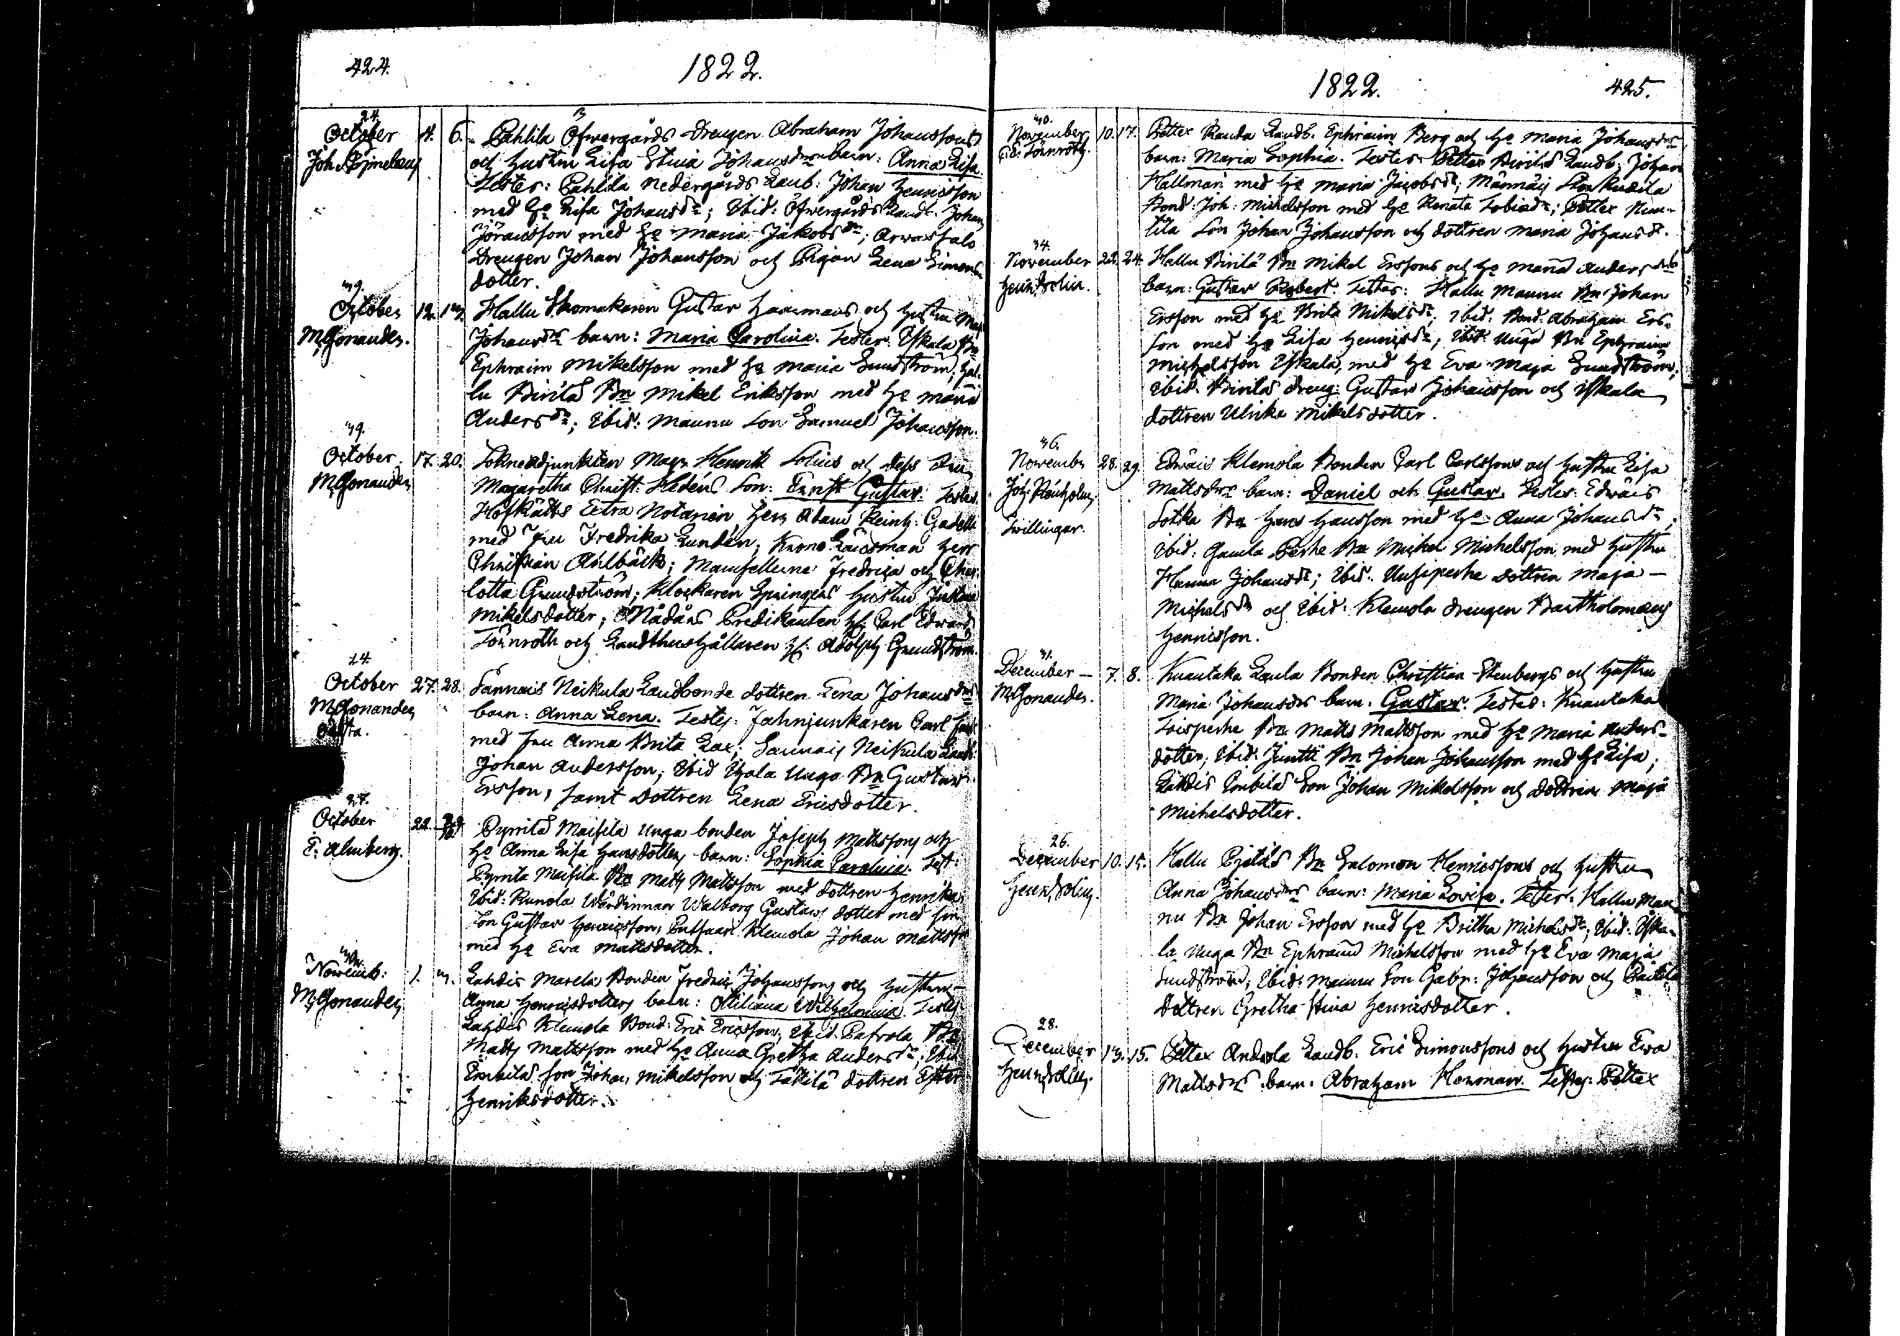 424.
1822.
24.
October 4. 6. Pahlila Öfwergårds Drengen Abraham Johanssons
och hustru Lisa Stina Johansdrs barn: Anna Lisa.
Testes: Pahlila Nedergårds Landb: Johan Henricsson
med h: Lisa Johansdr; Ibid: Öfwergårds Landb: Johan
Göransson med h: Maria Jakobsdr;
Drengen Johan Johansson och Pigan Lena Simons
dotter.
39.
October 12. 13. Hallu Skomakaren Gustav och hustru
M. Gonander. Johansdrs barn: Maria Carolina. Testes: Yskala Bn
Ephraim Mikelsson med h: Maria Sundström; Hal-
lu Pirilä Bn Mikel Eriksson med h: Maria
Andersdr; Ibid: Maunu Son Samuel Johansson.
39.
October 17. 20. Sokneadjunkten Mag: Henrik och dess Fru
M. Gonander Margaretha Christ: Hedéns Son: Ernst Gustav. Testes:
Hofrätts Extra Notarien Herr Adam Reinh:
med Fru Fredrika Lundén; Krono Länsman Herr
Christian Ahlbäck; Mamsellerne Fredrica och Char-
lotta Grundström; Klockaren Hustru
Mikelsdotter; Nådårs Predikanten H: Carl Edward
Lönroth och H: Adolph Grundström.
24.
October 27. 28. Sannais Neikula Landbonde dottren Lena Johansdrs
M. Gonander barn: Anna Lena. Testes: Fahnjunkaren Carl
med fru Anna Brita Lax; Sannais Neikula Landb:
Johan Andersson; Ibid Unga Bn Gustav
Ersson, samt dottren Lena Ericsdotter.
27.
October 22. Maisila Unga bonden Joseph Mattssons och
E. Almberg. h: Anna Lisa Hansdotters barn: Sophia Carolina. Test:
Maisila Bn Matts Mattsson med dottren Henrika;
Ibid: Runola Wärdinnan Walborg Gustavs dotter med sin
Son Gustav Henricsson; Klemola Johan Mattsson
med h: Eva Mattsdotter.
Novemb: 1. 3. Lahdis Marela Bonden Fredric Johanssons och hustru
M. Gonander Anna Henricsdotters barn: Wilhelmina. Testes:
Lahdis Klemola Bond: Eric Ericsson; Ibid: Bn
Matts Mattsson med h: Anna Gretha Andersdr; Ibid
son Johan Mikelsson och dottren
Henriksdotter.
1822.
425.
40.
November 10. 17. Pettex Randa Landb. Ephraim Berg och h: Maria Johansdrs
C: E: Lönroth. barn: Maria Sophia. Testes: Pettex Pirilä Landb: Johan
Hallman med h: Maria Jacobsdr;
Bond: Joh: Michelsson med h: Renata Tobiedr; Pettex
Son Johan Johansson och dottren Maria Johansdr.
34.
November 22. 24. Hallu Pirilä Bn Mikel Erssons och h: Maria Andersdrs
barn: Gustav Robert. Testes: Hallu Maunu Bn Johan
Ersson med h: Brita Mikelsdr; Ibid: Bond: Abraham Ers-
son med h: Lisa Henricsdr; Ibid: Unga Bn Ephraim
Michelsson Yskala, med h: Eva Maja Sundström;
Ibid: Pirilä dreng: Gustav Johansson och Yskala
dottren Ulrika Mikelsdotter.
36.
November 28. 29. Klemola Bonden Carl Carlssons och hustru Lisa
Mattsdrs barn: Daniel och Gustav. Testes:
Tvillingar. Sotka Bn Hans Hansson med h: Anna Johansdr;
Ibid: Gamla Perhe Bn Michel Michelsson med hustru
Hanna Johansdr; Ibid: Uusiperhe dottren Maja
Michelsdr och Ibid: Klemola drengen Bartholomæus
Henricsson.
31.
December 7. 8. Kuuttaka Laula Bonden Christian Stenbergs och hustru
M. Gonander. Maria Johansdrs barn: Gustav. Testes: Kuuttaka
Bn Matts Mattsson med h: Maria Anders-
dotter; Ibid: Juntti Bn Johan Johansson med h: Lisa;
Lahdis Son Johan Mikelsson och dottren Maja
Michelsdotter.
26.
December 10. 15. Hallu Bn Salomon Henricssons och hustru
Anna Johansdrs barn: Maria Lovisa. Testes: Hallu Mau-
nu Bn Johan Ersson med h: Britha Michelsdr; Ibid: Yska-
la Unga Bn Ephraim Michelsson med h: Eva Maja
Sundström; Ibid: Maunu Son Gabr: Johansson och
dottren Gretha Stina Henricsdotter.
28.
December 13. 15. Pettex Androla Landb. Eric Simonssons och hustru Eva
Mattsdrs barn: Abraham Herman. Testes: Pettex